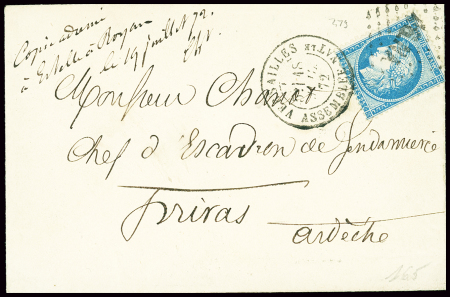 Copie adressée
à Estelle à Royan
le 19 juillet 72.
VERSAILLES ASSEMBLÉE NAT
72
Monsieur Chanal
Chef d'Escadron de Gendarmerie
Privas
ardèche